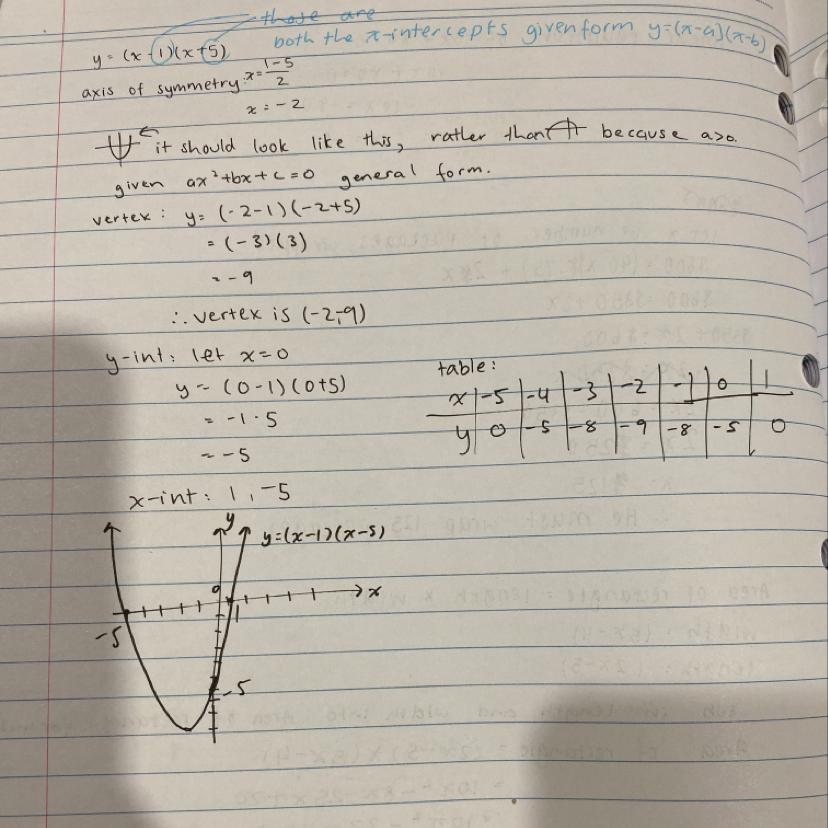 those are
both the x-intercepts given form y=(x-a)(x-b)
y = (x-1)(x+5)
axis of symmetry: x = \frac{1-5}{2}
x = -2
it should look like this, rather than because a>0.
given ax²+bx+c=0 general form.
vertex: y= (-2-1)(-2+5)
= (-3)(3)
= -9
∴ vertex is (-2,-9)
y-int: let x=0
y = (0-1)(0+5)
= -1·5
= -5
table:
x -5 -4 -3 -2 -1 0 1
y 0 -5 -8 -9 -8 -5 0
x-int: 1, -5
y
y=(x-1)(x-5)
0
x
-5
1
-5